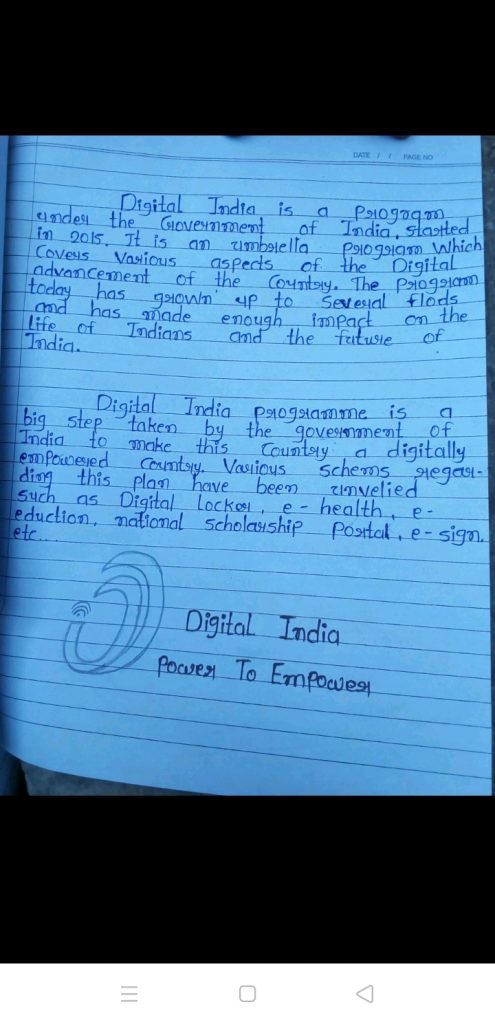 DATE / / PAGE NO
Digital India is a Program
under the Government of India, started
in 2015. It is an umbrella program Which
Covers Various aspects of the Digital
advancement of the Country. The Program
today has grown up to Several flods
and has made enough impact on the
life of Indians and the future of
India.
Digital India programme is a
big step taken by the government of
India to make this Country a digitally
empowered Country. Various schems regar-
ding this plan have been unvelied
such as Digital locker, e-health, e-
eduction, national scholarship Portal, e-sign.
etc...
Digital India
Power To Empower